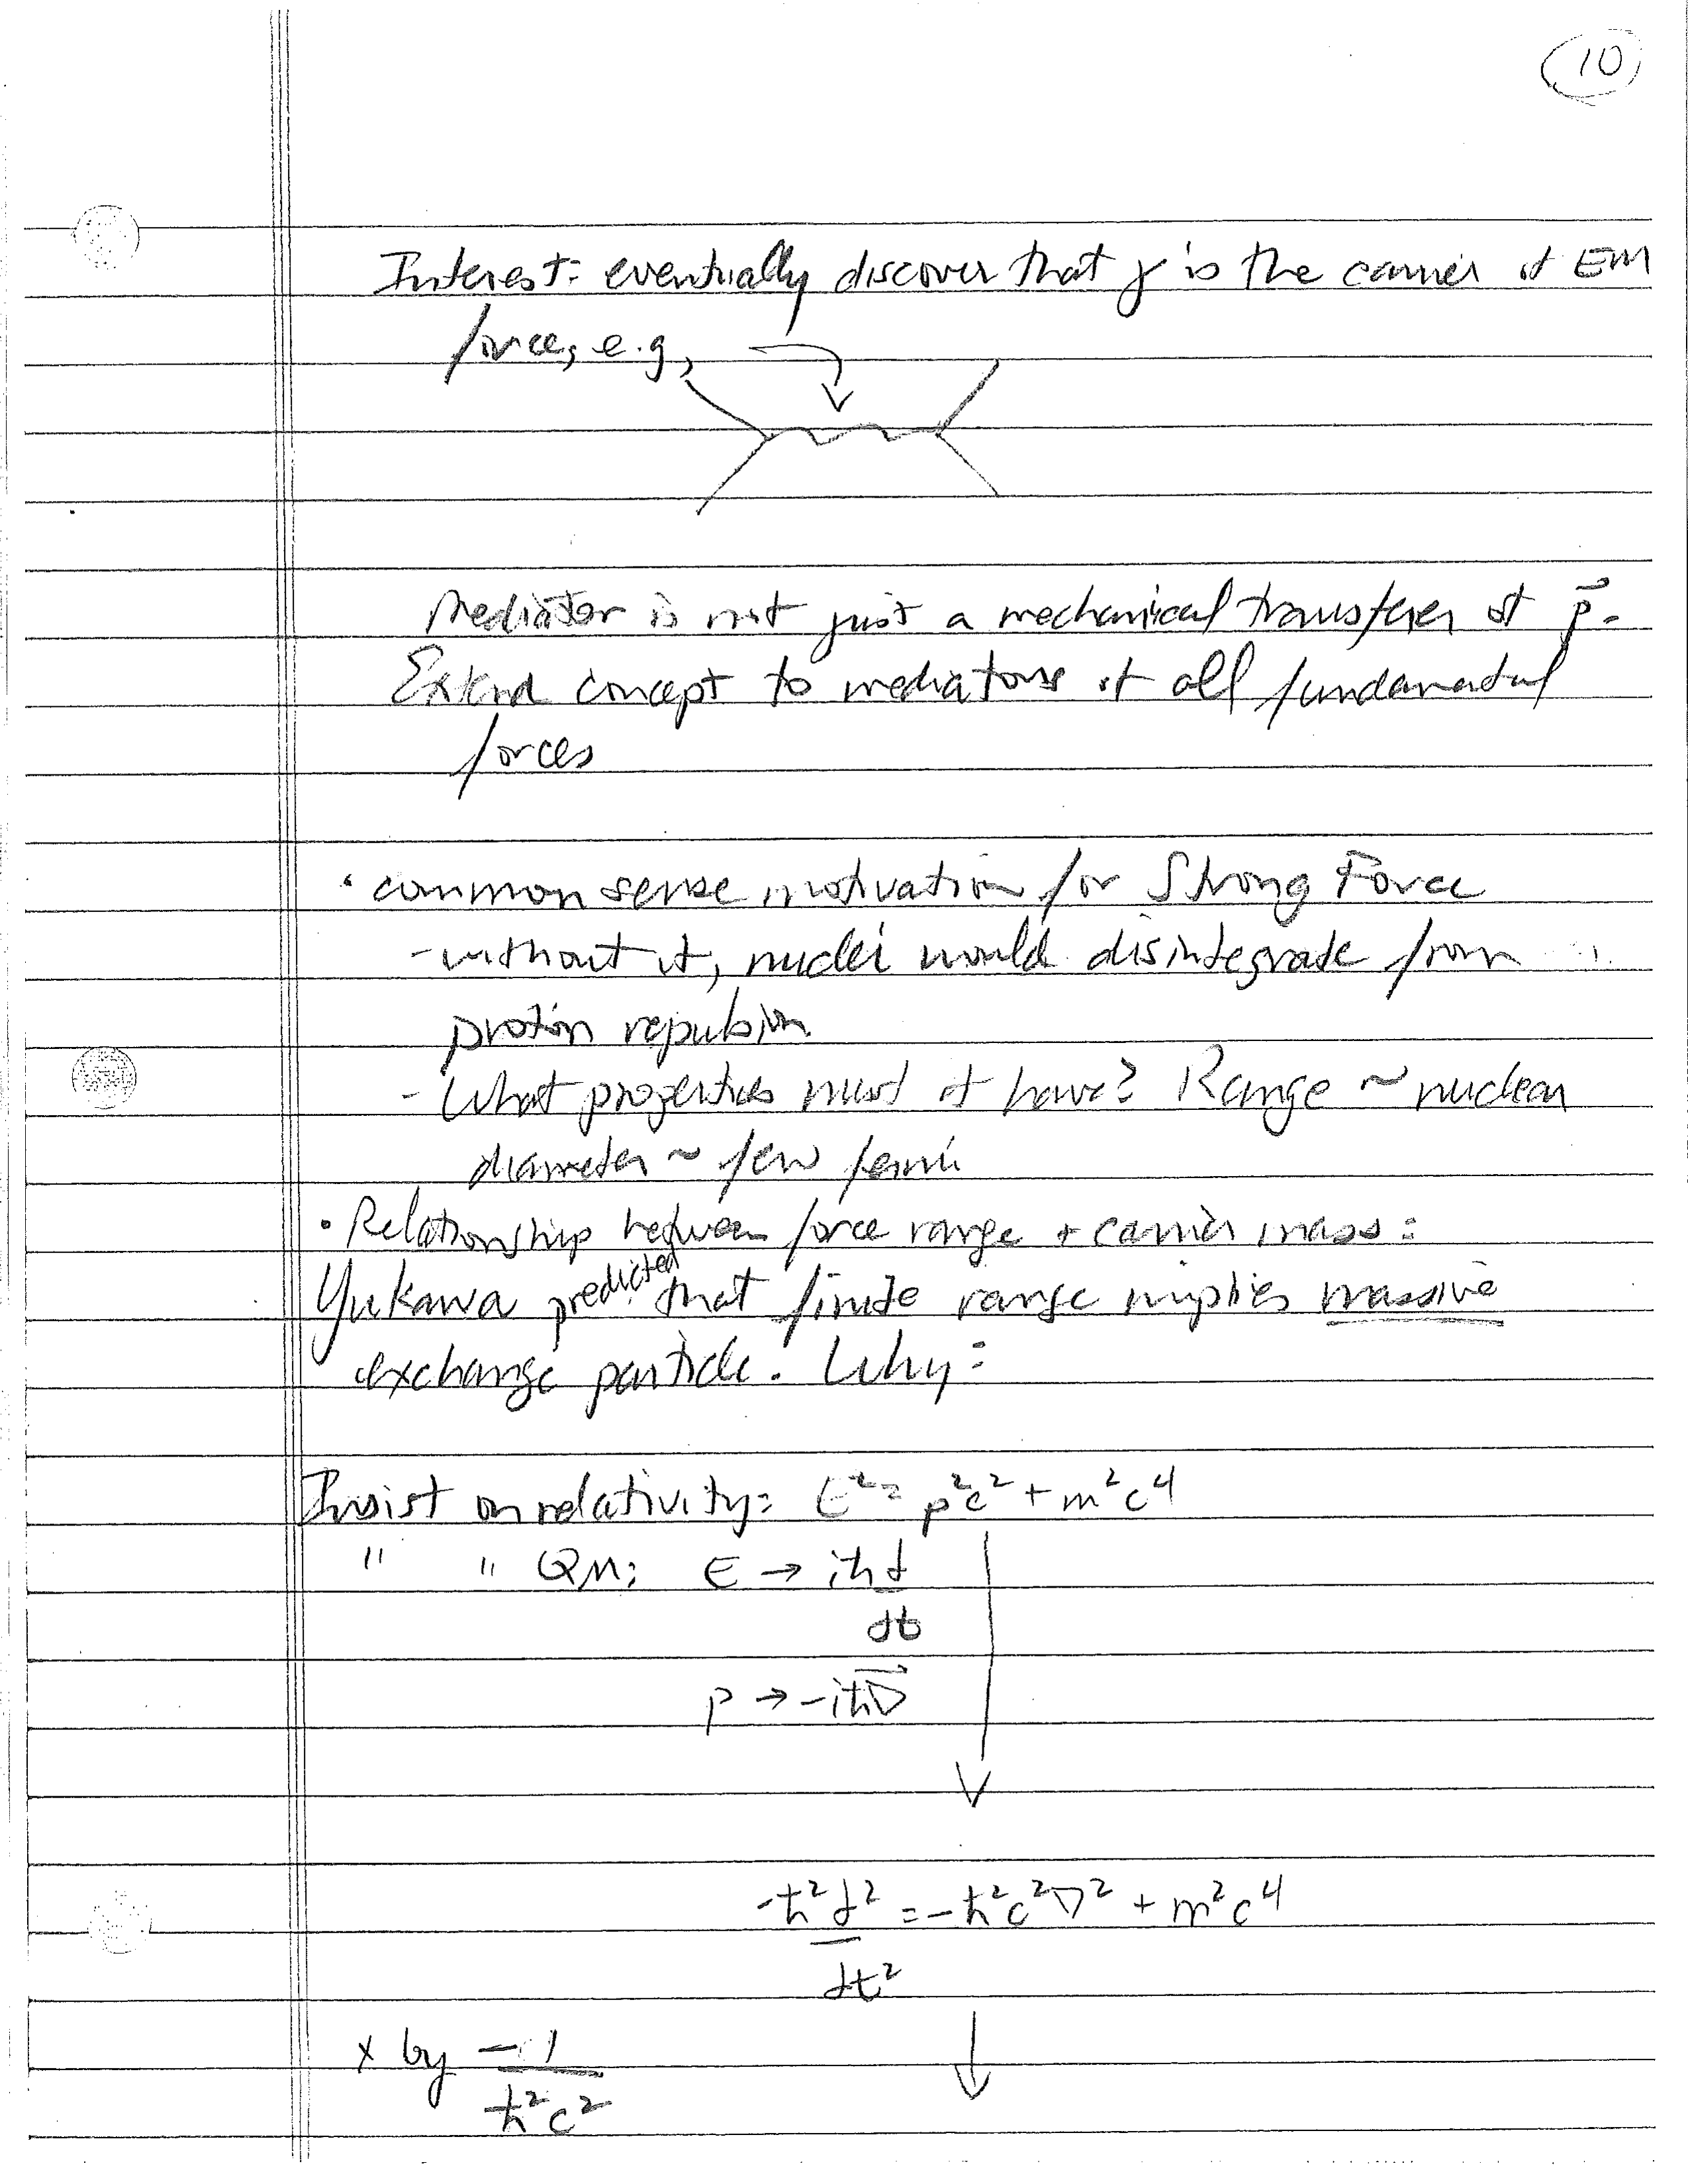 10
Interest: eventually discover that γ is the carrier of EM
force, e.g,
Mediator is not just a mechanical transfer of p⃗.
Extend concept to mediators of all fundamental
forces
• common sense motivation for Strong Force
- without it, nuclei would disintegrate from
proton repulsion
- What properties must it have? Range ~ nuclear
diameter ~ few fermi
• Relationship between force range + carrier mass:
Yukawa predicted that finite range implies massive
exchange particle. Why:
Insist on relativity: E² = p²c² + m²c⁴
" " QM: E → iħ ∂/∂t
p → -iħ∇⃗
-ħ² ∂²/∂t² = -ħ²c²∇² + m²c⁴
x by -1/ħ²c²